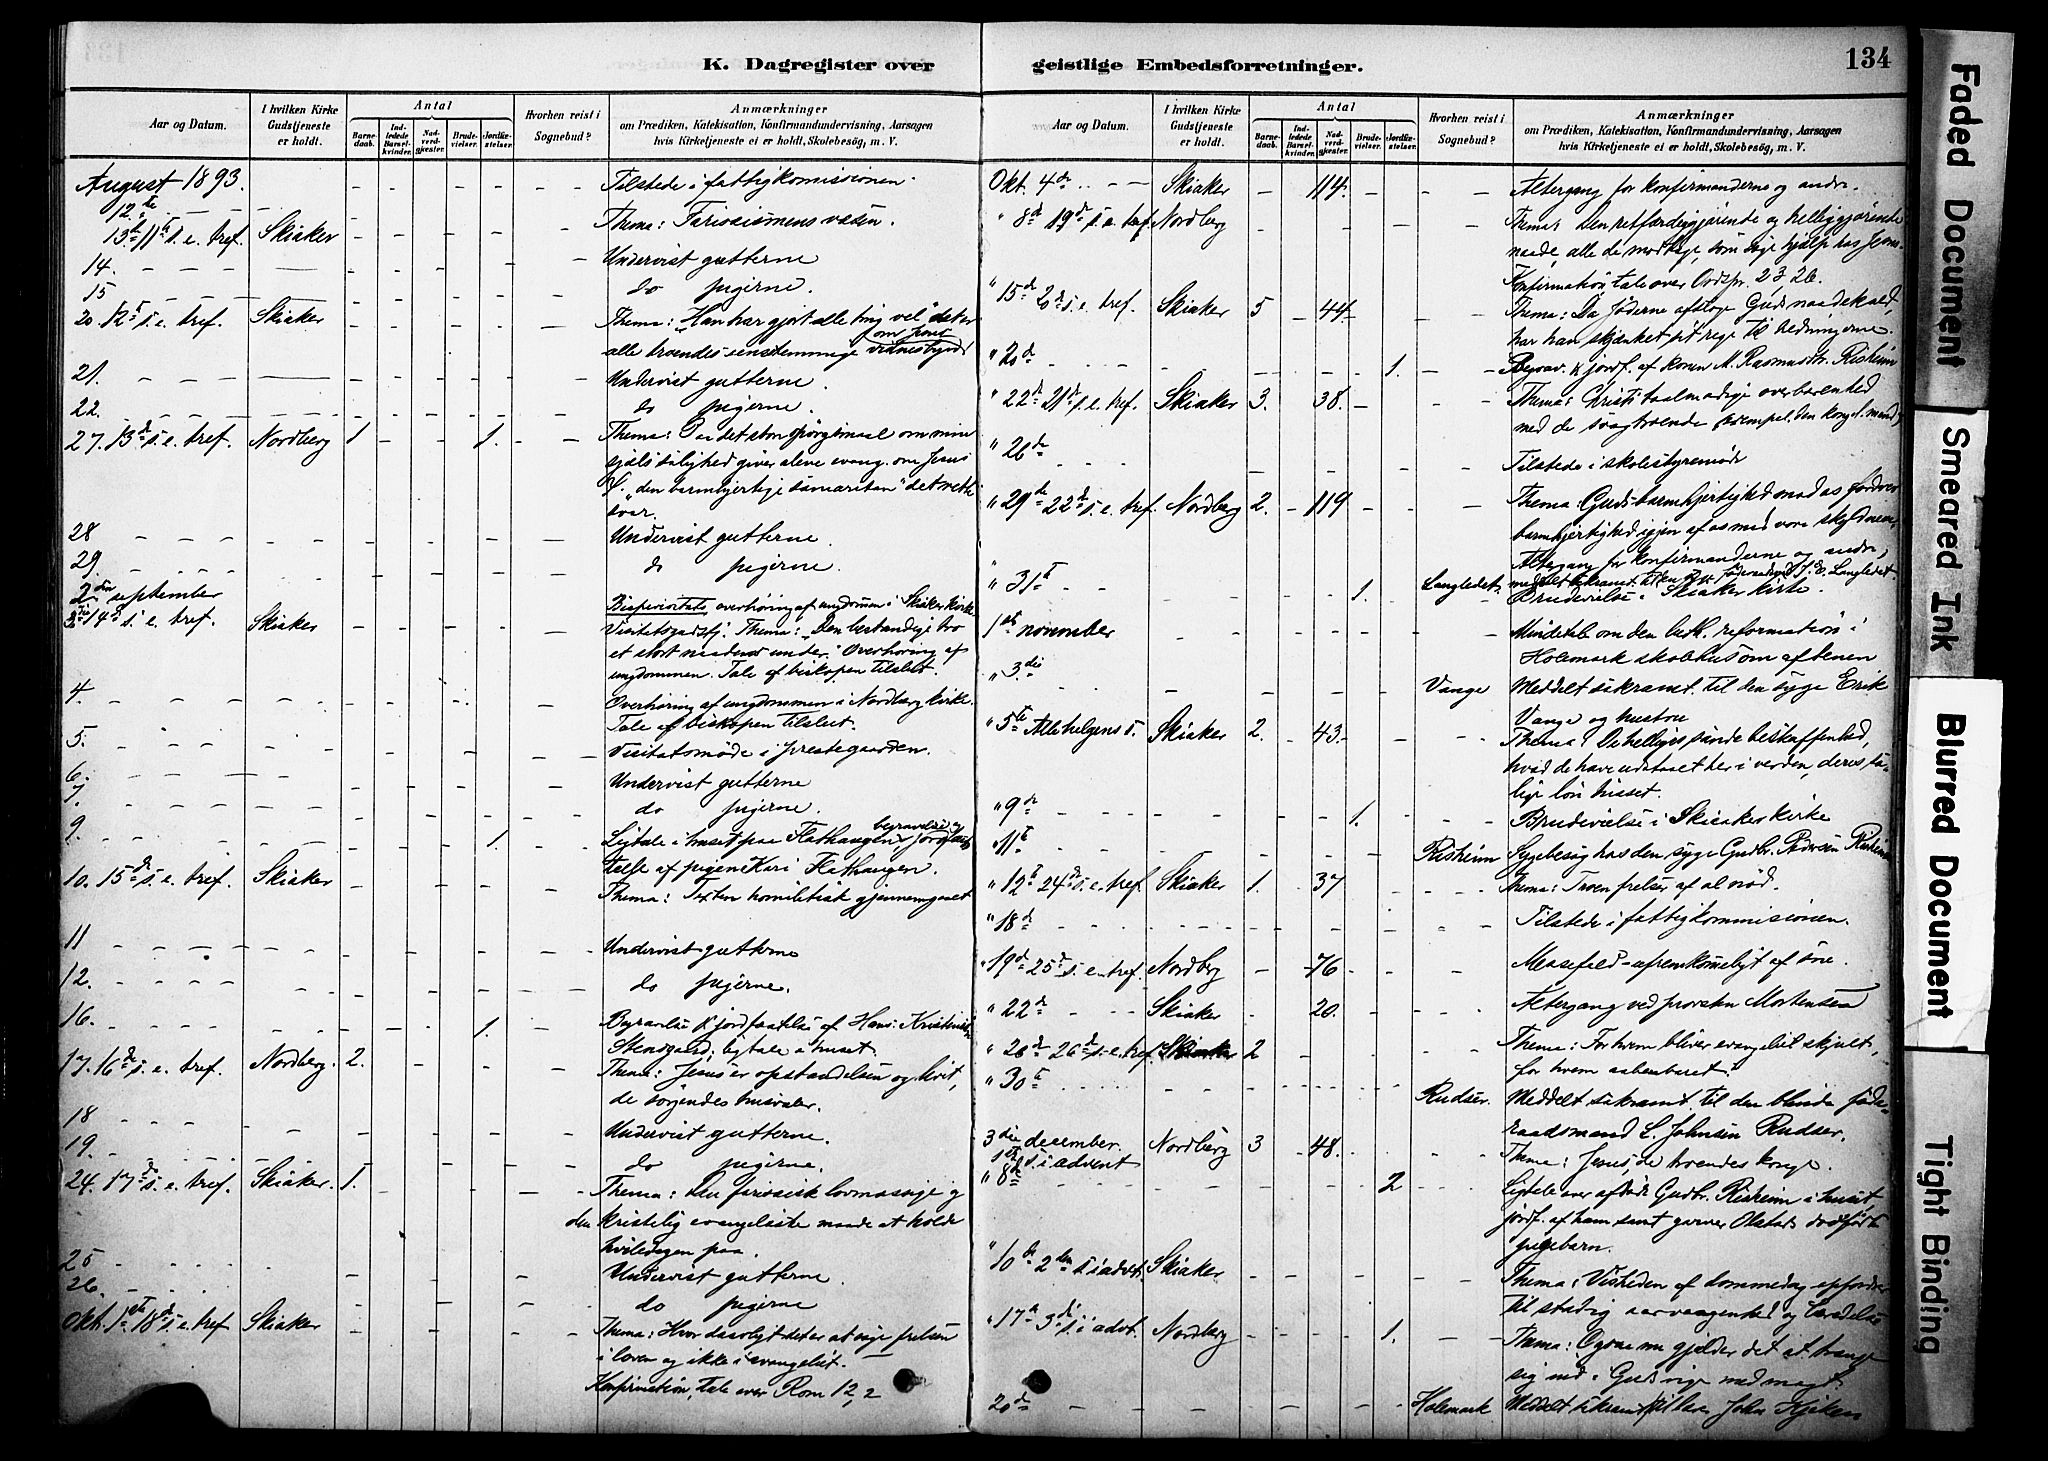 K. Dagregister over geistlige Embedsforretninger.
134
Aar og Datum.
I hvilken Kirke Gudstjeneste er holdt.
Antal
Barnedaab.
Indledede Barselkvinder.
Nadverdgjester.
Brudevielser.
Jordfæstelser.
Hvorhen reist i Sognebud?
Anmærkninger
om Prædiken, Katekisation, Konfirmandundervisning, Aarsagen
hvis Kirketjeneste ei er holdt, Skolebesøg, m. V.
August 1893.
12te Tilstede i fattigkomissionen.
13de 11te s. e. tref. Skiaker Thema: Fariseismens væsen.
14. Undervist gutterne
15 do pigerne.
20. 12te s. e. tref. Skiaker Thema: "Han har gjort alle ting vel" det er
alle troendes enstemmige vidnesbyrd om ham
21. Undervist gutterne.
22. do pigerne.
27. 13de s. e. tref. Nordberg 1 1. Thema: Paa det store spørgsmaal om min
sjæls salighed giver alene evang. om Jesus
"den barmhjertige samaritan" det rette
svar.
28 Undervist gutterne.
29. do pigerne.
2den september Bispevisitats overhøring af ungdommen i Skiaker kirke
3die 14de s. e. tref. Skiaker Visitatsgudstj. Thema: "Den bestandige tro
et stort naadens under." Overhøring af
ungdommen. Tale af biskopen tilslut.
4. Overhøring af ungdommen i Nordberg kirke.
Tale af biskopen tilslut.
5. Visitatsmøde i prestegaarden.
6. Undervist gutterne
7. do pigerne.
9. 1. Ligtale i huset paa Flathaugen, begravelse og jordfæs-
telse af pigen Kari Flathaugen.
10. 15de s. e. tref. Skiaker Thema: Texten homiletisk gjennemgaaet
11 Undervist gutterne
12. do pigerne.
16. 1. Begravelse & jordfæstelse af Hans Kristensen
Stensgaard; ligtale i huset.
17. 16de s. e. tref. Nordberg. 2. Thema: Jesus er opstandelsen og livet,
de sørgendes husvaler.
18 Undervist gutterne.
19. do pigerne.
24. 17de s. e. tref. Skiaker. 1. Thema: Den fariseisk lovmæssige og
den kristelig evangeliske maade at holde
hviledagen paa.
25 Undervist gutterne.
26. do pigerne
Okt. 1ste 18de s. e. tref Skiaker Thema: Hvor daarligt det er at søge frelsen
i loven og ikke i evangeliet.
Konfirmation, tale over Rom 12,2
Aar og Datum.
I hvilken Kirke Gudstjeneste er holdt.
Antal
Barnedaab.
Indledede Barselkvinder.
Nadverdgjester.
Brudevielser.
Jordfæstelser.
Hvorhen reist i Sognebud?
Anmærkninger
om Prædiken, Katekisation, Konfirmandundervisning, Aarsagen
hvis Kirketjeneste ei er holdt, Skolebesøg, m. V.
Okt. 4de Skiaker 114. Altergang for konfirmanderne og andre.
" 8de 19de s. e. tref. Nordberg Thema: Den retfærdiggjørende og helliggjørende
naade, alle de modtage, som søge hjælp hos Jesus.
Konfirmation tale over Ordspr. 23,26.
" 15de 20de s. e. tref. Skiaker 5 44. Thema: Da Jøderne afsloge Guds naadekald,
har han skjænket sit rige til hedningerne.
" 20de 1. Begrav. & jordf. af konen M. Rasmusdtr. Risheim
" 22de 21de s. e. tref. Skiaker 3. 38. Thema: Christi taalmodige overbærenhed
med de svagtroende exempel. den kongel. mand
" 26de Tilstede i skolestyremøde
" 29de 22de s. e. tref. Nordberg 2. 119 Thema: Guds barmhjertighed mod os fordrer
barmhjertighed igjen af os mod vore skyldnere.
Altergang for konfirmanderne og andre,
Langledet meddelt sakrament. til den syge J. E. Langledet.
" 31te 1. Brudevielse i Skiaker kirke.
1ste november Mindetale om den luth. reformation i
Holemark skolehus om aftenen
" 3die Vange Meddelt sakrament. til den syge Erik
Vange og hustru
" 5te Alle helgens s. Skiaker 2. 43. Thema: De helliges sande beskaffenhed,
hvad de have udstaaet her i verden, deres sa-
lige løn hisset.
" 9de 1. Brudevielse i Skiaker kirke
" 11te Risheim Sygebesøg hos den syge Gudbr. Pedersen Risheim
" 12te 24de s. e. tref Skiaker 1. 37 Thema: Troen frelser af al nød.
" 18de Tilstede i fattigkommissionen.
" 19de 25de s. e. tref. Nordberg 76 Messefald - ufremkommeligt af sne.
" 22de Skiaker 20. Altergang ved provsten Mortensen
" 26de 26de s. e. tref. Skiaker 2 Thema: For hvem bliver evangeliet skjult,
for hvem aabenbaret?
" 30te Rudser. Meddelt sakramt. til den blinde føde-
raadsmand L. Johnsen Rudser.
3die december. Nordberg 3 48. Thema: Jesus, de troendes konge.
1ste s. i advent
" 8de 2 Ligtale over afdøde Gudbr. Risheim i huset,
jordf. af ham samt gaver Olstads dødfødt
pigebarn.
" 10de 2den s. i advt. Skiaker Thema: Visheden af dommedag opfordrer
til stadig aarvaagenhed og beredelse
" 17de 3die s. i advt. Nordberg 1. Thema: Ogsaa nu gjælder det at trænge
sig ind i Guds rige med magt.
20de Holemark Meddelt sakram. til John Kjeken
Faded Document
Smeared Ink
Blurred Document
Tight Binding